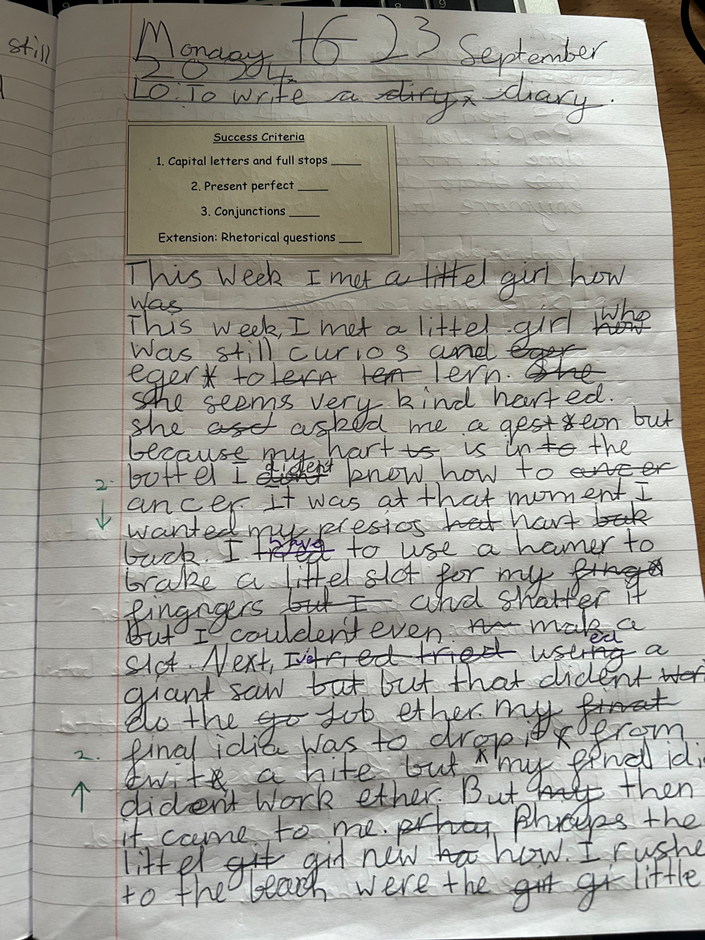 still
Monday 16 23 September
2024
LO: To write a diry diary.
Success Criteria
1. Capital letters and full stops ____
2. Present perfect ____
3. Conjunctions ____
Extension: Rhetorical questions ____
This week I met a littel girl how
was
This week, I met a littel girl how who
was still curios and eger
eger to lern ten lern. She
she seems very kind harted.
she asd asked me a qesteon but
because my hart is is in to the
bottel I dont dident know how to ancer
ancer. it was at that moment I
wanted my presios hat hart bak
back. I tried have to use a hamer to
brake a littel slot for my fing
fingngers but I and shatter it
but I couldent even m make a
slot. Next, I've tried tried useing used a
giant saw bat but that dident wor
do the go Job ether. my finat
final idia was to drop it from
twit a hite but my final idi
dident work ether. But my then
it came to me. prhay Phraps the
littel git girl new ha how. I rushe
to the beach were the girt gi little
2.
2.